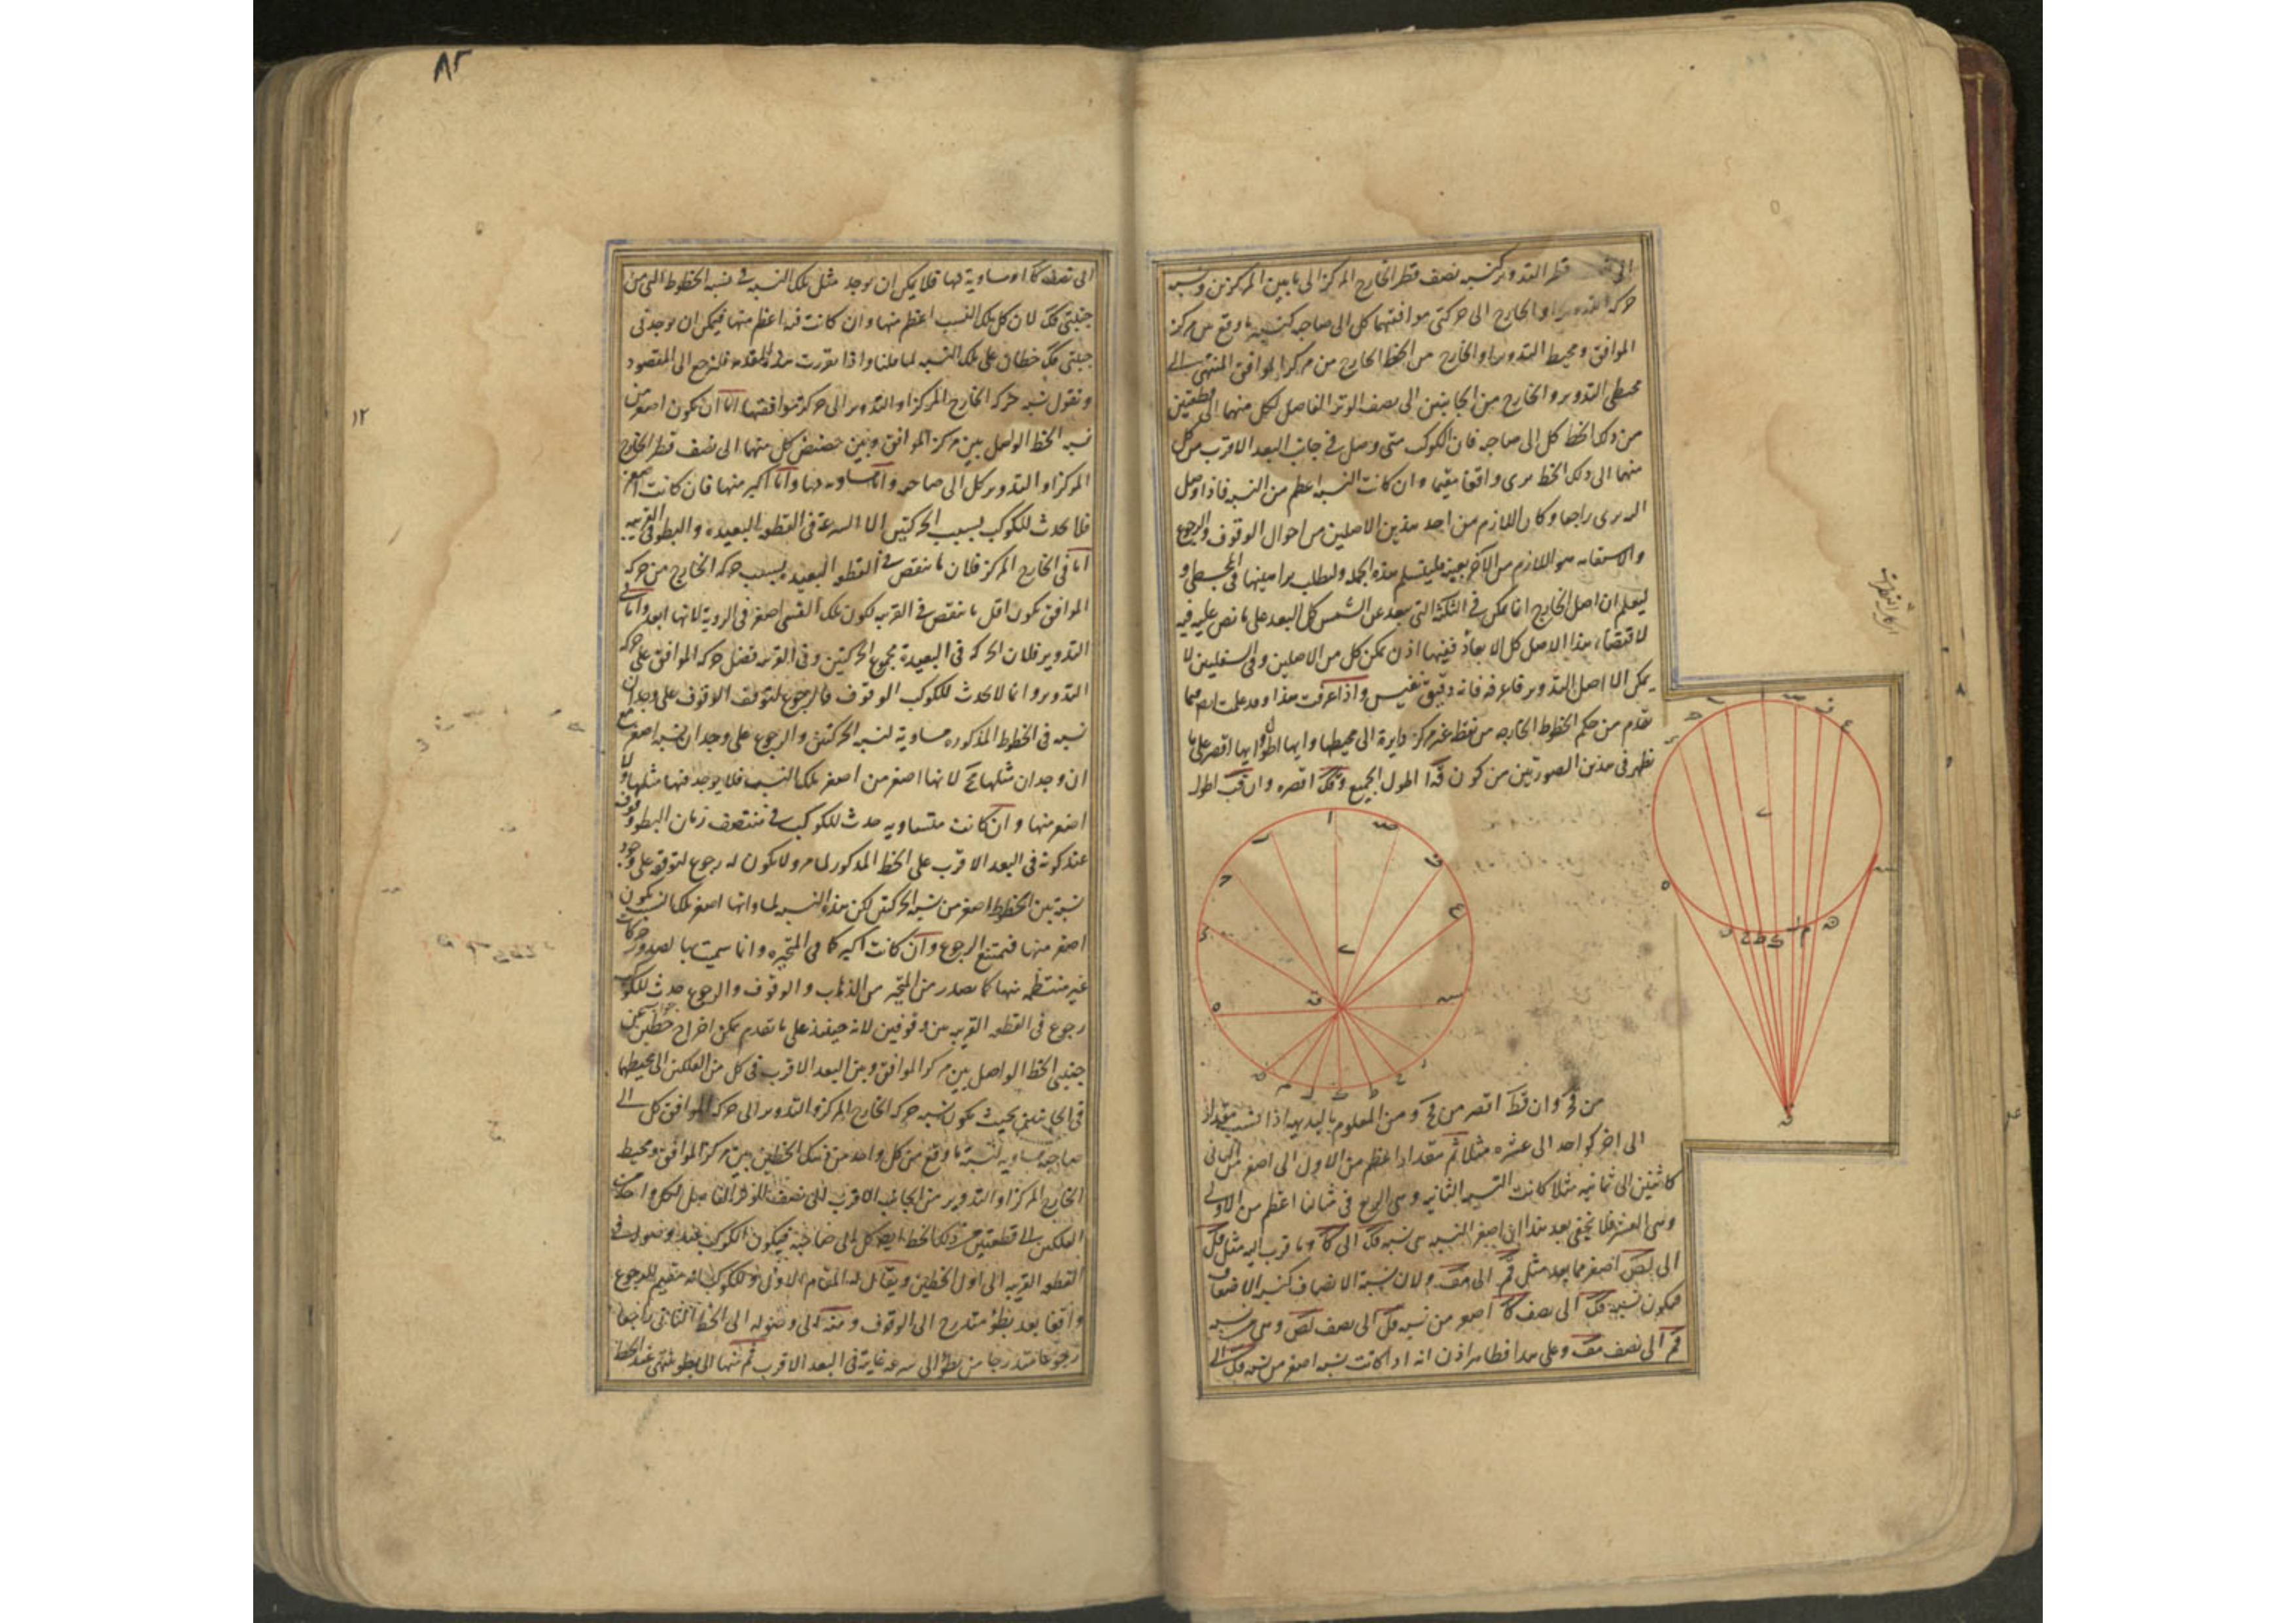 قطر التدوير كنسبة نصف قطر الخارج المركز الى ما بين المركزين ونسبة
او الخارج الى حركتى موافقتهما كل الى صاحبه كنسبة ما وقع من مركز
الموافق ومحيط التدوير او الخارج من الخط الخارج من مركز الموافق المنتهى الى
محيطى التدوير والخارج من الجانبين الى نصف الوتر الفاصل لكل منهما الى قطعتين
من ذلك الخط كل الى صاحبه فان الكوكب متى وصل فى جانب البعد الاقرب من كل
منهما الى ذلك الخط يرى واقفا مقيما وان كانت النسبة اعظم من النسبة فاذا وصل
اليه يرى راجعا وكان اللازم من احد هذين الاصلين من احوال الوقوف والرجوع
والاستقامة هو اللازم من الآخر بعينه فليتسلم هذه الجملة ولتطلب براهينها فى المجسطى و
ليعلم ان اصل الخارج انما يمكن فى الثلثة التى تبعد عن الشمس كل البعد على ما نص عليه فيه
لاقتضاء هذا الاصل كل الابعاد ففيها اذن يمكن كل من الاصلين وفى السفليين لا
يمكن الا اصل التدوير فاعرفه فانه دقيق نفيس واذا عرفت هذا وقد علمت ايضا مما
تقدم من حكم الخطوط الخارجة من نقطة غير مركز دايرة الى محيطها وايها اطول وايها اقصر على ما
يظهر فى هذين الصورتين من كون قا اطول الجميع وقك اقصره وان قب اطول
من قج وان قط اقصر من قح ومن المعلوم بالبديهة اذا نسب مقدار
الى اخر كواحد الى عشرة مثلا ثم مقدار اعظم من الاول الى اصغر من الثانى
كاثنين الى ثمانية مثلا كانت النسبة الثانية وهى الربع فى مثالنا اعظم من الاولى
وهى العشر فلا يخفى بعد هذا ان اصغر النسب هى نسبة قك الى كا وما قرب اليه مثل قل
الى لص اصغر مما بعد مثل قم الى مف ولان نسبة الانصاف كنسبة الاضعاف
فيكون نسبة قك الى نصف كا اصغر من نسبة قل الى نصف لص وهى من نسبة
قم الى نصف مف وعلى هذا فظاهر اذن انه اذا كانت نسبة اصغر من نسبة قك الى
ا
ص
ف
ع
س
ح
ق
ه
ط
ك
ل
م
٨٣
الى نصف كا او مساوية لها فلا يمكن ان يوجد مثل تلك النسبة فى نسبة الخطوط التى من
جنبتى قك لان كل تلك النسب اعظم منها وان كانت نسبة اعظم منها فيمكن ان يوجد فى
جنبتى قك خطان على تلك النسبة لما قلنا واذا تقررت هذه المقدمة فلنرجع الى المقصود
ونقول نسبة حركة الخارج المركز او التدوير الى حركة موافقتها اما ان تكون اصغر من
نسبة الخط الواصل بين مركز الموافق وبين حضيض كل منهما الى نصف قطر الخارج
المركز او التدوير كل الى صاحبه واما مساوية لها واما اكبر منها فان كانت اصغر
فلا يحدث للكوكب بسبب الحركتين الا السرعة فى القطعة البعيدة والبطؤ فى القريبة
اما فى الخارج المركز فلان ما ينقص فى القطعة البعيدة بسبب حركة الخارج من حركة
الموافق يكون اقل مما ينقص فى القريبة لكون تلك القسى اصغر فى الرؤية لانها ابعد واما فى
التدوير فلان الحركة فى البعيدة مجموع الحركتين وفى القريبة فضل حركة الموافق على حركة
التدوير وانما لا يحدث للكوكب الوقوف فالرجوع لتوقف الوقوف على وجدان
نسبة فى الخطوط المذكورة مساوية لنسبة الحركتين والرجوع على وجدان نسبة اصغر مع
ان وجدان مثلها مح لانها اصغر من اصغر تلك النسب فلا يوجد فيها مثلها ولا
اصغر منها وان كانت متساوية حدث للكوكب فى منتصف زمان البطؤ وقوف
عند كونه فى البعد الاقرب على الخط المذكور لما مر ولا يكون له رجوع لتوقفه على وجود
نسبة بين الخطوط اصغر من نسبة الحركتين لكن هذه النسبة لمساواتها اصغر تلك النسب يكون
اصغر منها فيمتنع الرجوع وان كانت اكبر كما فى المتحيرة وانما سميت بها لصدور حركات
غير منتظمة منها كما يصدر من المتحير من الذهاب والوقوف والرجوع حدث للكوكب
رجوع فى القطعة القريبة بين وقوفين لانه حينئذ على ما تقدم يمكن اخراج خطين عن
جنبتى الخط الواصل بين مركز الموافق وبين البعد الاقرب فى كل من الفلكين الى محيطها
فى الجانبين بحيث يكون نسبة حركة الخارج المركز والتدوير الى حركة الموافق كل الى
صاحبه مساوية لنسبة ما وقع من كل واحد من ذينك الخطين بين مركز الموافق ومحيط
الخارج المركز او التدوير من الجانب الاقرب الى نصف الوتر الفاصل لكل واحد من
الفلكين الى قطعتين من ذلك الخط ايضا كل الى صاحبه فيكون الكوكب عند وصوله فى
القطعة القريبة الى اول الخطين ويقال له المقام الاول وللكوكب انه مقيم للرجوع
واقفا بعد بطؤ متدرج الى الوقوف ومنه الى وصوله الى الخط الثانى راجعا
رجوعا متدرجا من بطؤ الى سرعة غايته فى البعد الاقرب ثم منها الى بطؤ ينتهى عند الخط
١٢